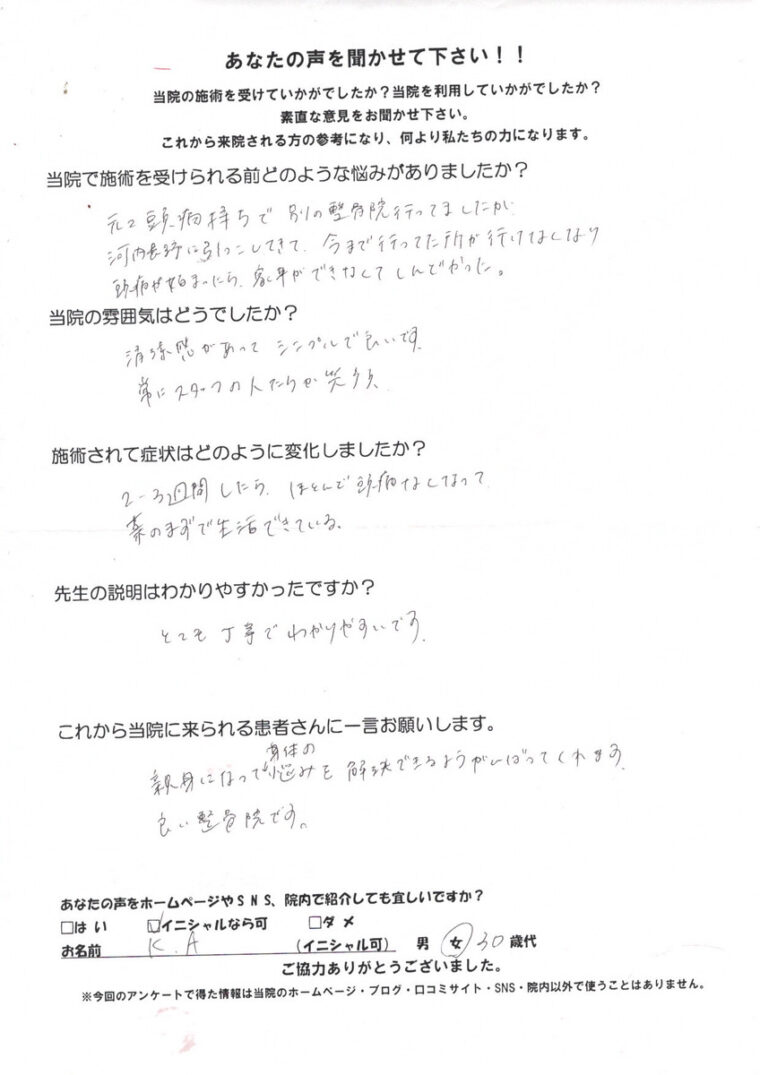 あなたの声を聞かせて下さい！！
当院の施術を受けていかがでしたか？当院を利用していかがでしたか？
素直な意見をお聞かせ下さい。
これから来院される方の参考になり、何より私たちの力になります。
当院で施術を受けられる前どのような悩みがありましたか？
元々頭痛持ちで別の整骨院行ってましたが
河内長野に引っこしてきて、今まで行ってた所が行けなくなり
頭痛が始まったら、家事ができなくてしんどかった。
当院の雰囲気はどうでしたか？
清潔感があってシンプルで良いです。
常にスタッフの人たちが笑顔。
施術されて症状はどのように変化しましたか？
2-3週間したら、ほとんど頭痛なくなって
薬のまずで生活できている。
先生の説明はわかりやすかったですか？
とても丁寧でわかりやすいです。
これから当院に来られる患者さんに一言お願いします。
親身になって身体の悩みを解決できるようがんばってくれます。
良い整骨院です。
あなたの声をホームページやSNS、院内で紹介しても宜しいですか？
□はい ☑イニシャルなら可 □ダメ
お名前 K.A (イニシャル可) 男 女 30歳代
ご協力ありがとうございました。
※今回のアンケートで得た情報は当院のホームページ・ブログ・口コミサイト・SNS・院内以外で使うことはありません。